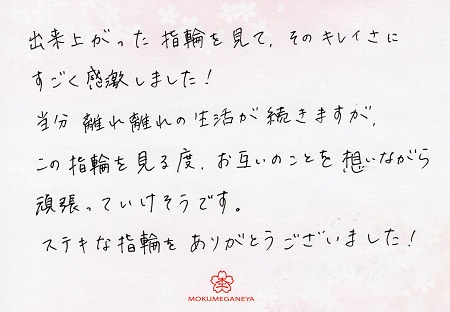 出来上がった指輪を見て、そのキレイさに
すごく感激しました！
当分 離れ離れの生活が続きますが、
この指輪を見る度、お互いのことを想いながら
頑張っていけそうです。
ステキな指輪をありがとうございました！
MOKUMEGANEYA